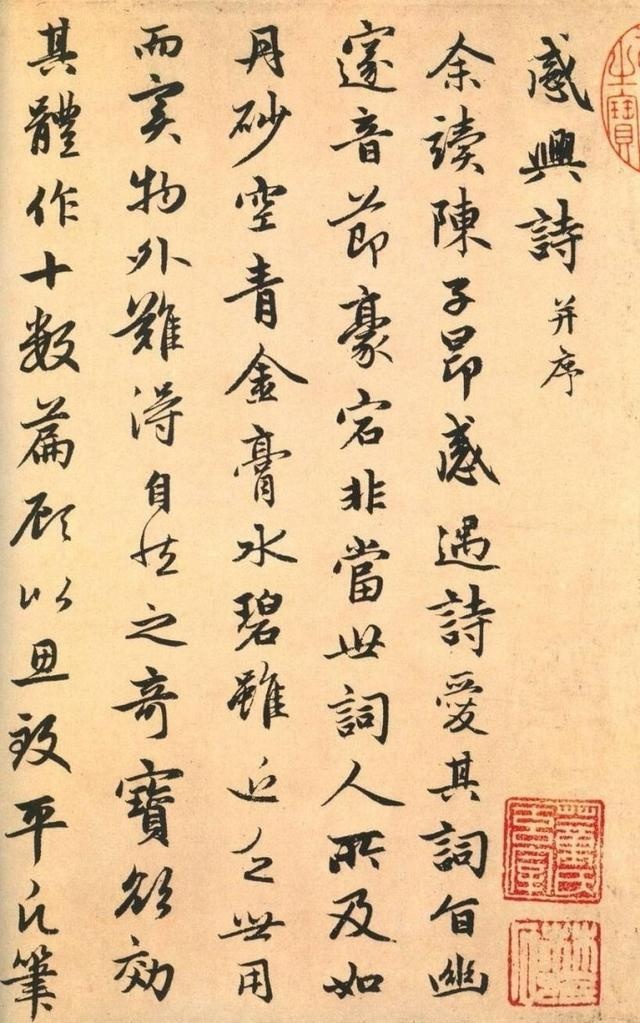 之寶
感興詩并序
余讀陳子昂感遇詩愛其詞旨幽
邃音節豪宕非當世詞人所及如
丹砂空青金膏水碧雖近乏世用
而实物外難得自然之奇寶欲効
其體作十数篇顧以思致平凡筆